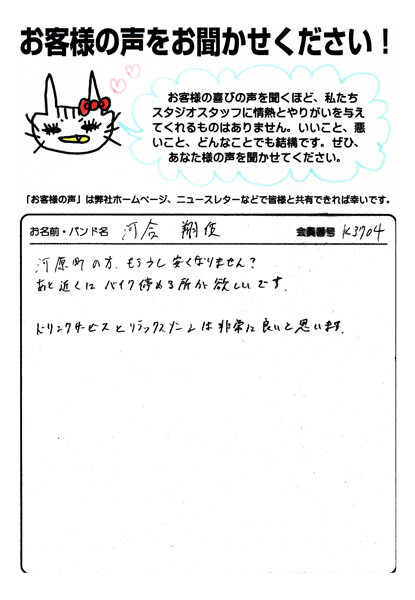 お客様の声をお聞かせください！
お客様の喜びの声を聞くほど、私たち
スタジオスタッフに情熱とやりがいを与え
てくれるものはありません。いいこと、悪
いこと、どんなことでも結構です。ぜひ、
あなた様の声を聞かせてください。
「お客様の声」は弊社ホームページ、ニュースレターなどで皆様と共有できれば幸いです。
お名前・バンド名 河合 翔俊 会員番号 K3704
河原町の方、もう少し安くなりません？
あと近くにバイク停める所が欲しいです。
ドリンクサービスとリラックスゾーンは非常に良いと思います。